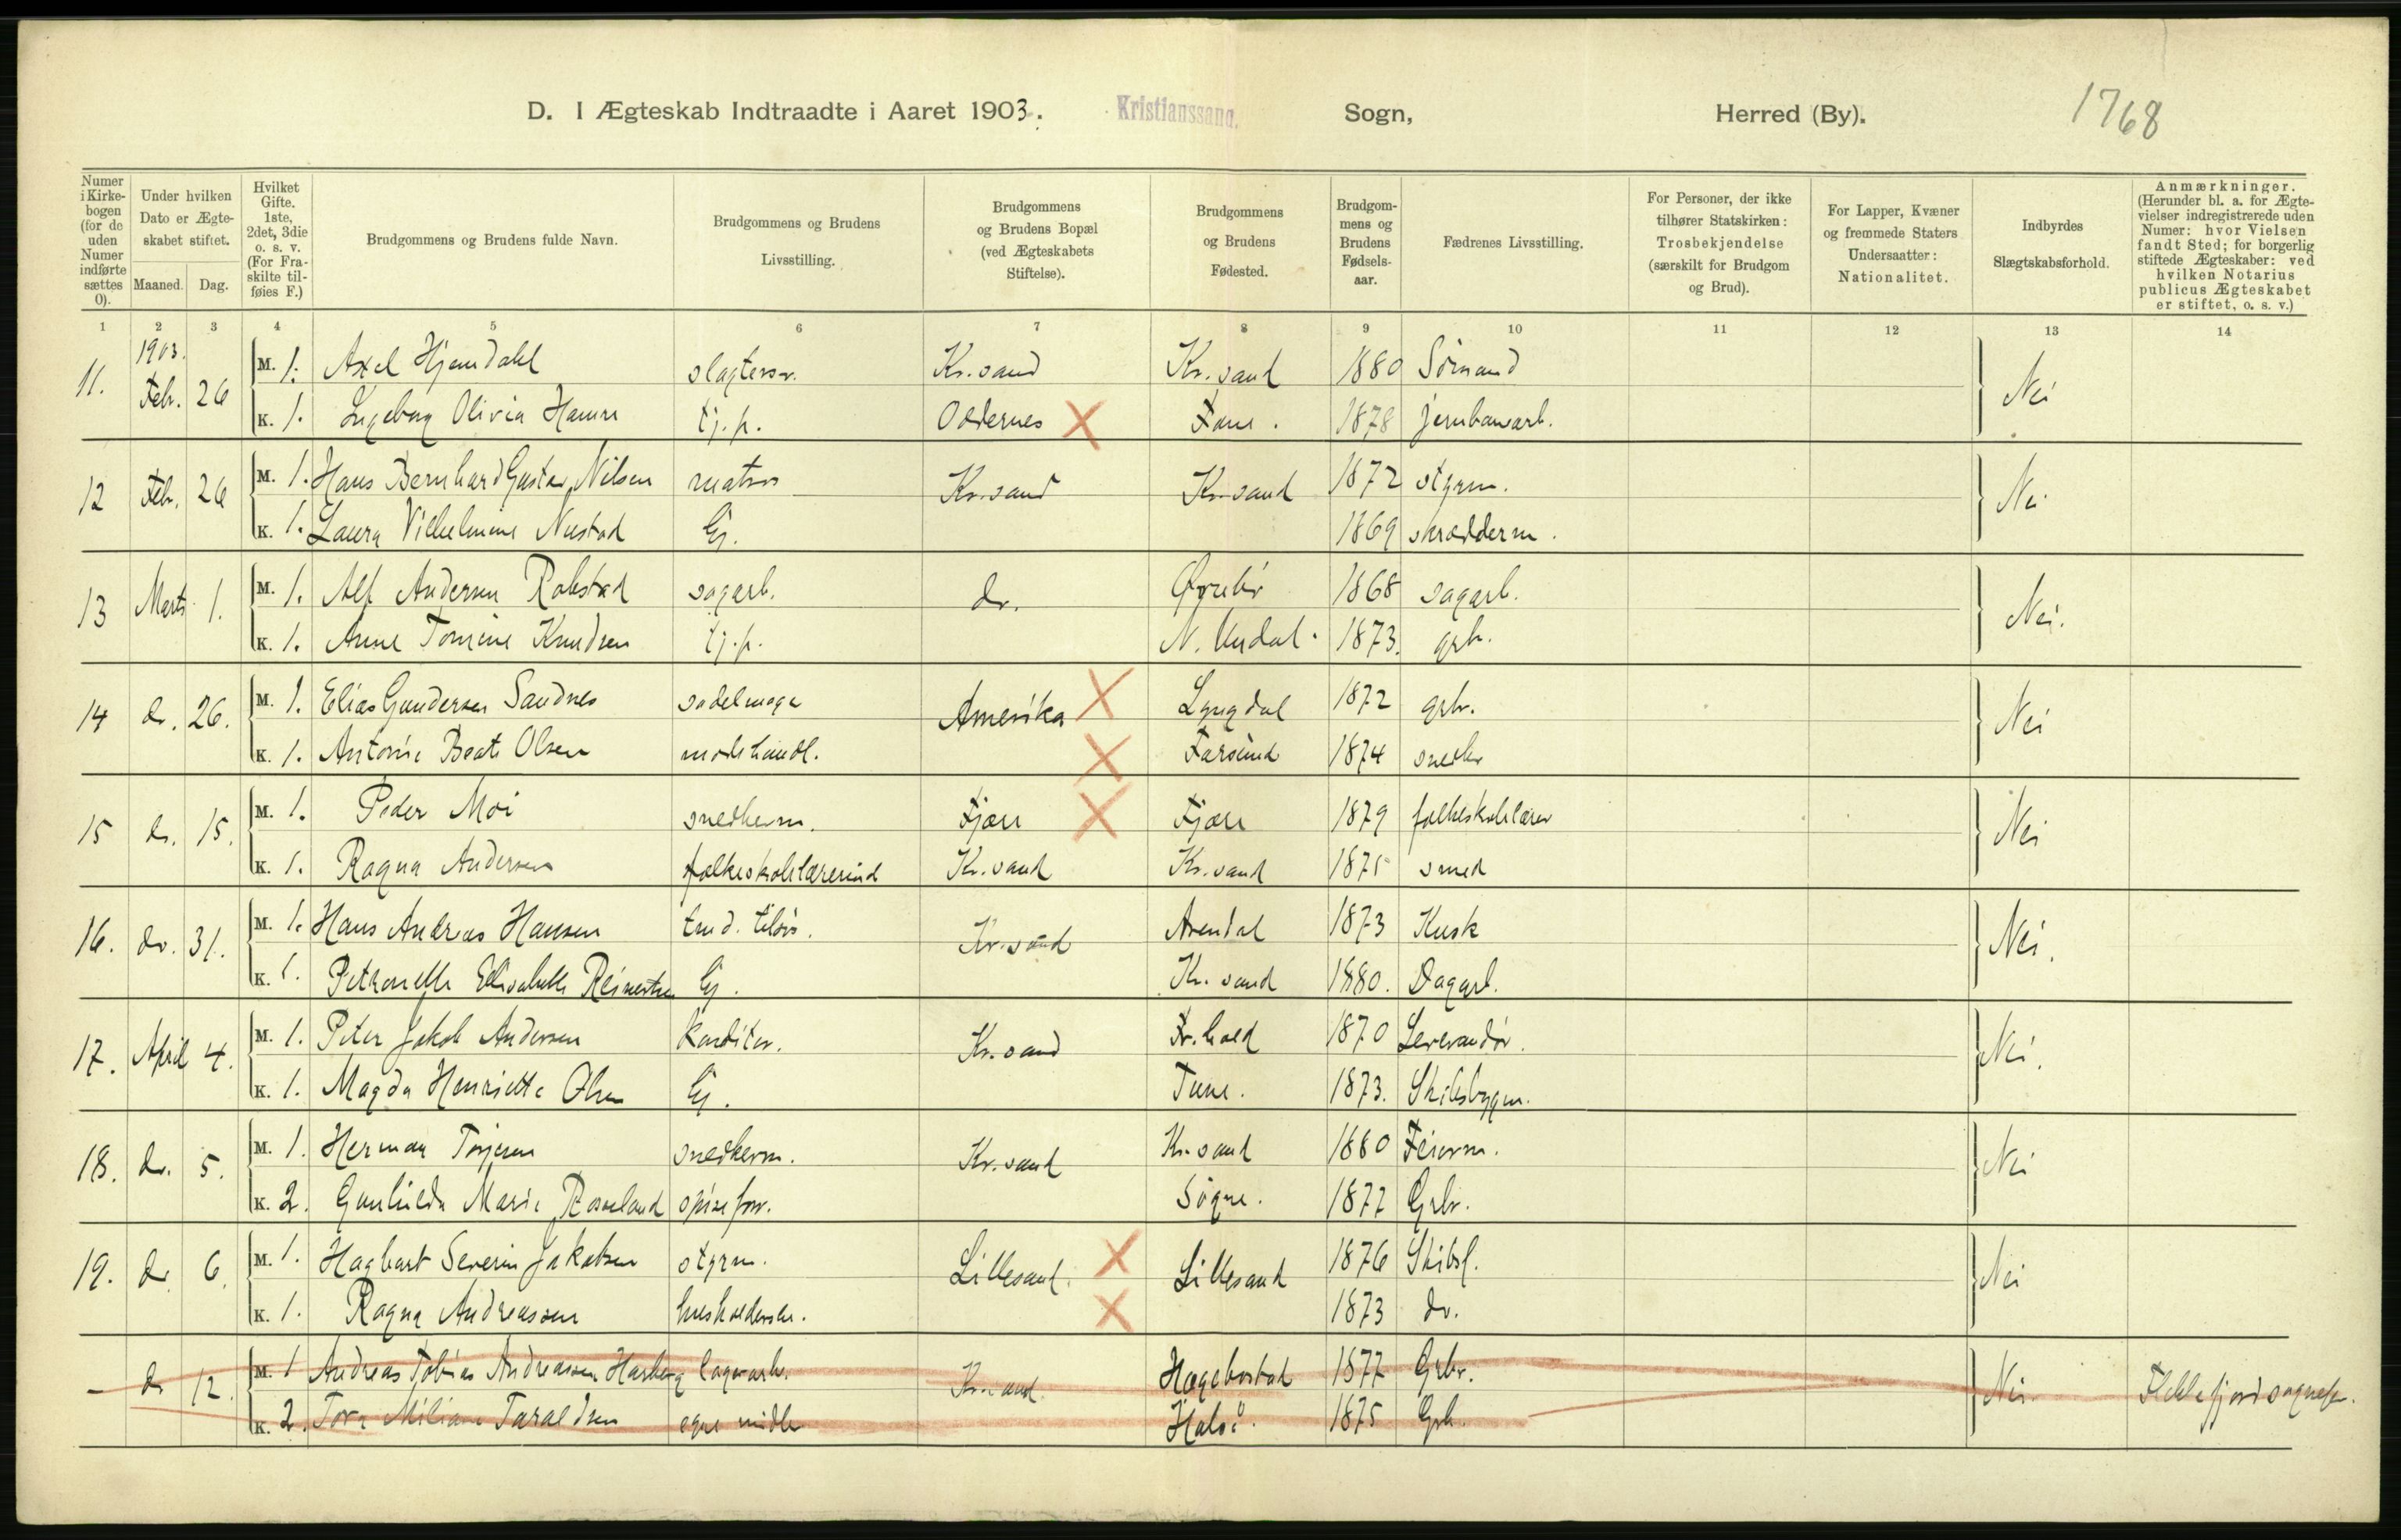 D. I Ægteskab Indtraadte i Aaret 1903. Kristianssand. Sogn, Herred (By). 1768
Numer i Kirkebogen (for de uden Numer indførte sættes 0). Under hvilken Dato er Ægteskabet stiftet. Maaned. Dag. Hvilket Gifte. 1ste, 2det, 3die o. s. v. (For Fraskilte tilføies F.) Brudgommens og Brudens fulde Navn. Brudgommens og Brudens Livsstilling. Brudgommens og Brudens Bopæl (ved Ægteskabets Stiftelse). Brudgommens og Brudens Fødested. Brudgommens og Brudens Fødselsaar. Fædrenes Livsstilling. For Personer, der ikke tilhører Statskirken: Trosbekjendelse (særskilt for Brudgom og Brud). For Lapper, Kvæner og fremmede Staters Undersaatter: Nationalitet. Indbyrdes Slægtskabsforhold. Anmærkninger. (Herunder bl. a. for Ægtevielser indregistrerede uden Numer: hvor Vielsen fandt Sted; for borgerlig stiftede Ægteskaber: ved hvilken Notarius publicus Ægteskabet er stiftet, o. s. v.)
1 2 3 4 5 6 7 8 9 10 11 12 13 14
1903.
11. Febr. 26 M. 1. Axel Hjemdahl slagtersv. Kr.sand Kr.sand 1880 Sømand Nei
K. 1. Ingeborg Olivia Hamre tj.p. Oddernes Fane. 1878 jernbanearb.
12 Feb. 26 M. 1. Hans Bernhard Gustav Nilsen matros Kr.sand Kr.sand 1872 styrm. Nei
K. 1. Laura Vilhelmine Nustad Ej. 1869 skrædderm.
13 Marts 1. M. 1. Alf Andersen Robstad sagarb. do. Øvrebø 1868 sagarb. Nei.
K. 1. Anne Tomine Knudsen tj.p. N. Undal. 1873. gbr.
14 do. 26. M. 1. Elias Gundersen Sandnes sadelmager Amerika Lyngdal 1872 gbr. Nei
K. 1. Antonie Beate Olsen modehandl. Farsund 1874 snedker
15 do. 15. M. 1. Peder Moi snedkerm. Fjære Fjære 1879 folkeskolelærer Nei
K. 1. Ragna Andersen folkeskolelærerinde Kr.sand Kr.sand 1875 smed
16. do. 31. M. 1. Hans Andreas Hansen Arendal 1873 Kusk Nei.
K. 1. Petronelle Elisabeth Reinertsen Ej. Kr.sand Kr.sand 1880. Dagarb.
17. April 4. M. 1. Peter Jakob Andersen Konditor. Kr.sand Fr.hald 1870 Leverandør. Nei.
K. 1. Magda Henriette Olsen Ej. Tune. 1873. Skibsbygm.
18. do. 5. M. 1. Herman Torjesen snedkerm. Kr.sand Kr.sand 1880 Feierm. Nei
K. 2. Gunhilda Marie Roseland spiseforr. Søgne. 1877 Grbr.
19. do 6. M. 1. Hagbart Severin Jakobsen styrm. Lillesand. Lillesand 1876 Skibsf. Nei
K. 1. Ragna Andreassen husholderske. 1873 do.
- do 12. M. 1 Andreas Tobias Andreassen lagerarb. Kr.sand. Hægebostad 1877 Grbr. Nei. Flekkefjord
K. 2. Tora Miliane Taraldsen egne midler Halså. 1875 Gbr.